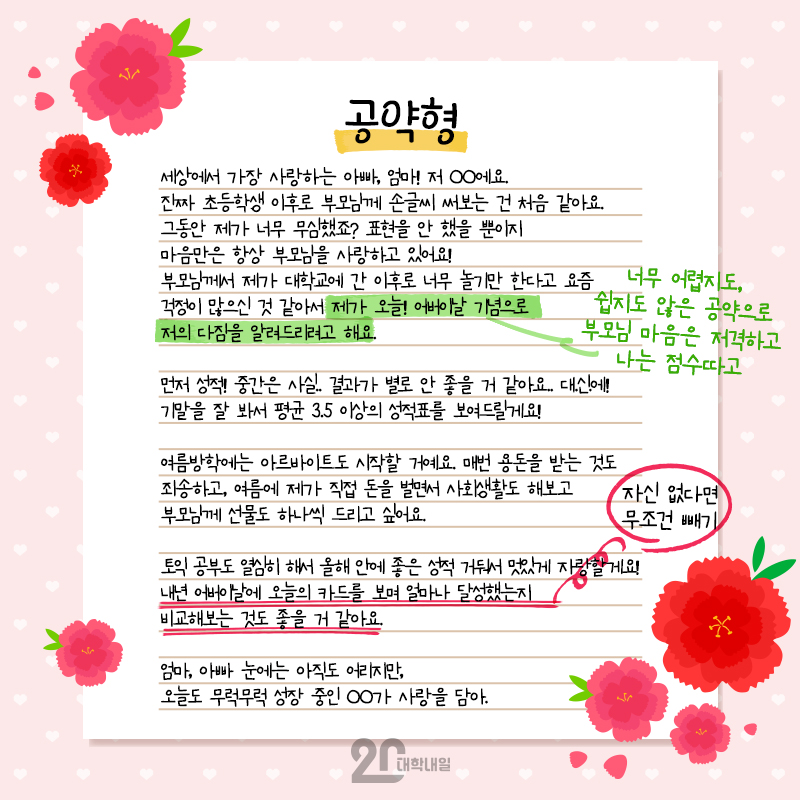 공약형
세상에서 가장 사랑하는 아빠, 엄마! 저 OO에요.
진짜 초등학생 이후로 부모님께 손글씨 써보는 건 처음 같아요.
그동안 제가 너무 무심했죠? 표현을 안 했을 뿐이지
마음만은 항상 부모님을 사랑하고 있어요!
부모님께서 제가 대학교에 간 이후로 너무 놀기만 한다고 요즘
걱정이 많으신 것 같아서 제가 오늘! 어버이날 기념으로
저의 다짐을 알려드리려고 해요.
너무 어렵지도,
쉽지도 않은 공약으로
부모님 마음은 저격하고
나는 점수따고
먼저 성적! 중간은 사실.. 결과가 별로 안 좋을 거 같아요.. 대신에!
기말을 잘 봐서 평균 3.5 이상의 성적표를 보여드릴게요!
여름방학에는 아르바이트도 시작할 거예요. 매번 용돈을 받는 것도
죄송하고, 여름에 제가 직접 돈을 벌면서 사회생활도 해보고
부모님께 선물도 하나씩 드리고 싶어요.
자신 없다면
무조건 빼기
토익 공부도 열심히 해서 올해 안에 좋은 성적 거둬서 멋있게 자랑할게요!
내년 어버이날에 오늘의 카드를 보며 얼마나 달성했는지
비교해보는 것도 좋을 거 같아요.
엄마, 아빠 눈에는 아직도 어리지만,
오늘도 무럭무럭 성장 중인 OO가 사랑을 담아.
20 대학내일